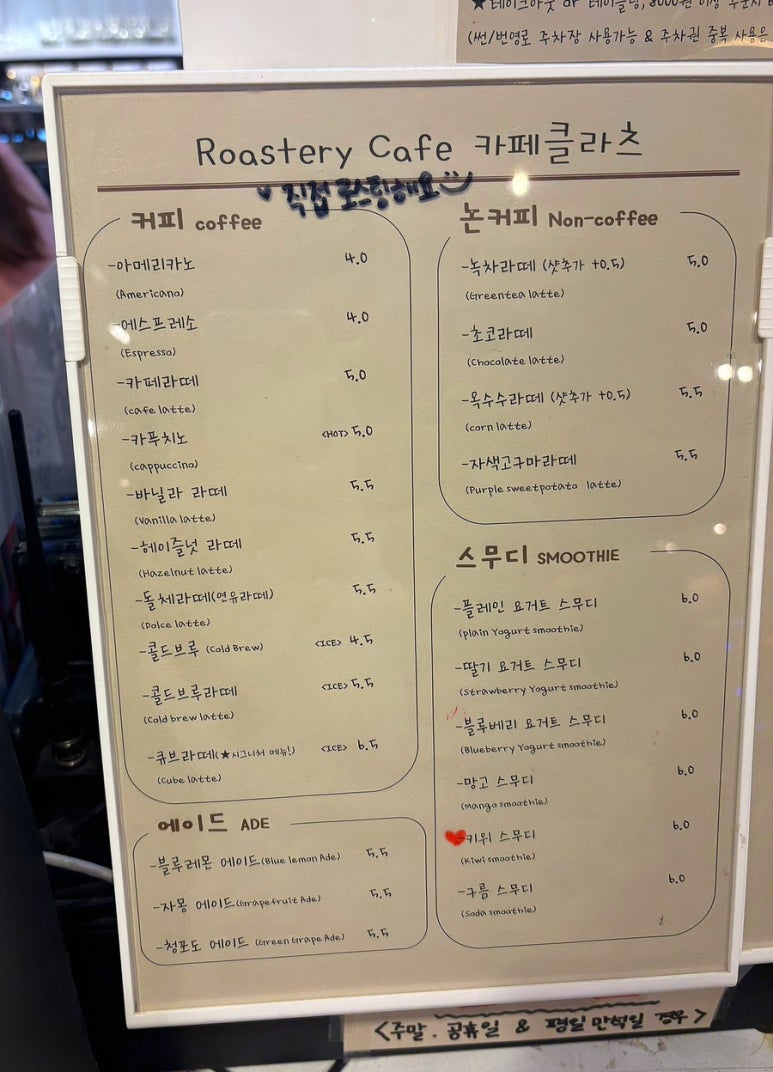 ★테이크아웃 or 테이블링, 8000원 이상 주문시
(썬/번영로 주차장 사용가능 & 주차권 중복 사용은
Roastery Cafe 카페클라츠
직접 로스팅해요
커피 coffee
-아메리카노 4.0
(Americano)
-에스프레소 4.0
(Espresso)
-카페라떼 5.0
(cafe latte)
-카푸치노 <HOT> 5.0
(cappuccino)
-바닐라 라떼 5.5
(Vanilla latte)
-헤이즐넛 라떼 5.5
(Hazelnut latte)
-돌체라떼(연유라떼) 5.5
(Dolce latte)
-콜드브루 (Cold Brew) <ICE> 4.5
-콜드브루라떼 <ICE> 5.5
(Cold brew latte)
-큐브라떼(★시그니처 메뉴!) <ICE> 6.5
(Cube latte)
에이드 ADE
-블루레몬 에이드(Blue lemon Ade) 5.5
-자몽 에이드(Grapefruit Ade) 5.5
-청포도 에이드 (Green Grape Ade) 5.5
논커피 Non-coffee
-녹차라떼 (샷추가 +0.5) 5.0
(Greentea latte)
-초코라떼 5.0
(Chocolate latte)
-옥수수라떼 (샷추가 +0.5) 5.5
(corn latte)
-자색고구마라떼 5.5
(Purple sweetpotato latte)
스무디 SMOOTHIE
-플레인 요거트 스무디 6.0
(plain Yogurt smoothie)
-딸기 요거트 스무디 6.0
(Strawberry Yogurt smoothie)
-블루베리 요거트 스무디 6.0
(Blueberry Yogurt smoothie)
-망고 스무디 6.0
(Mango smoothie)
-키위 스무디 6.0
(Kiwi smoothie)
-구름 스무디 6.0
(Soda smoothie)
<주말. 공휴일 & 평일 만석일 경우>